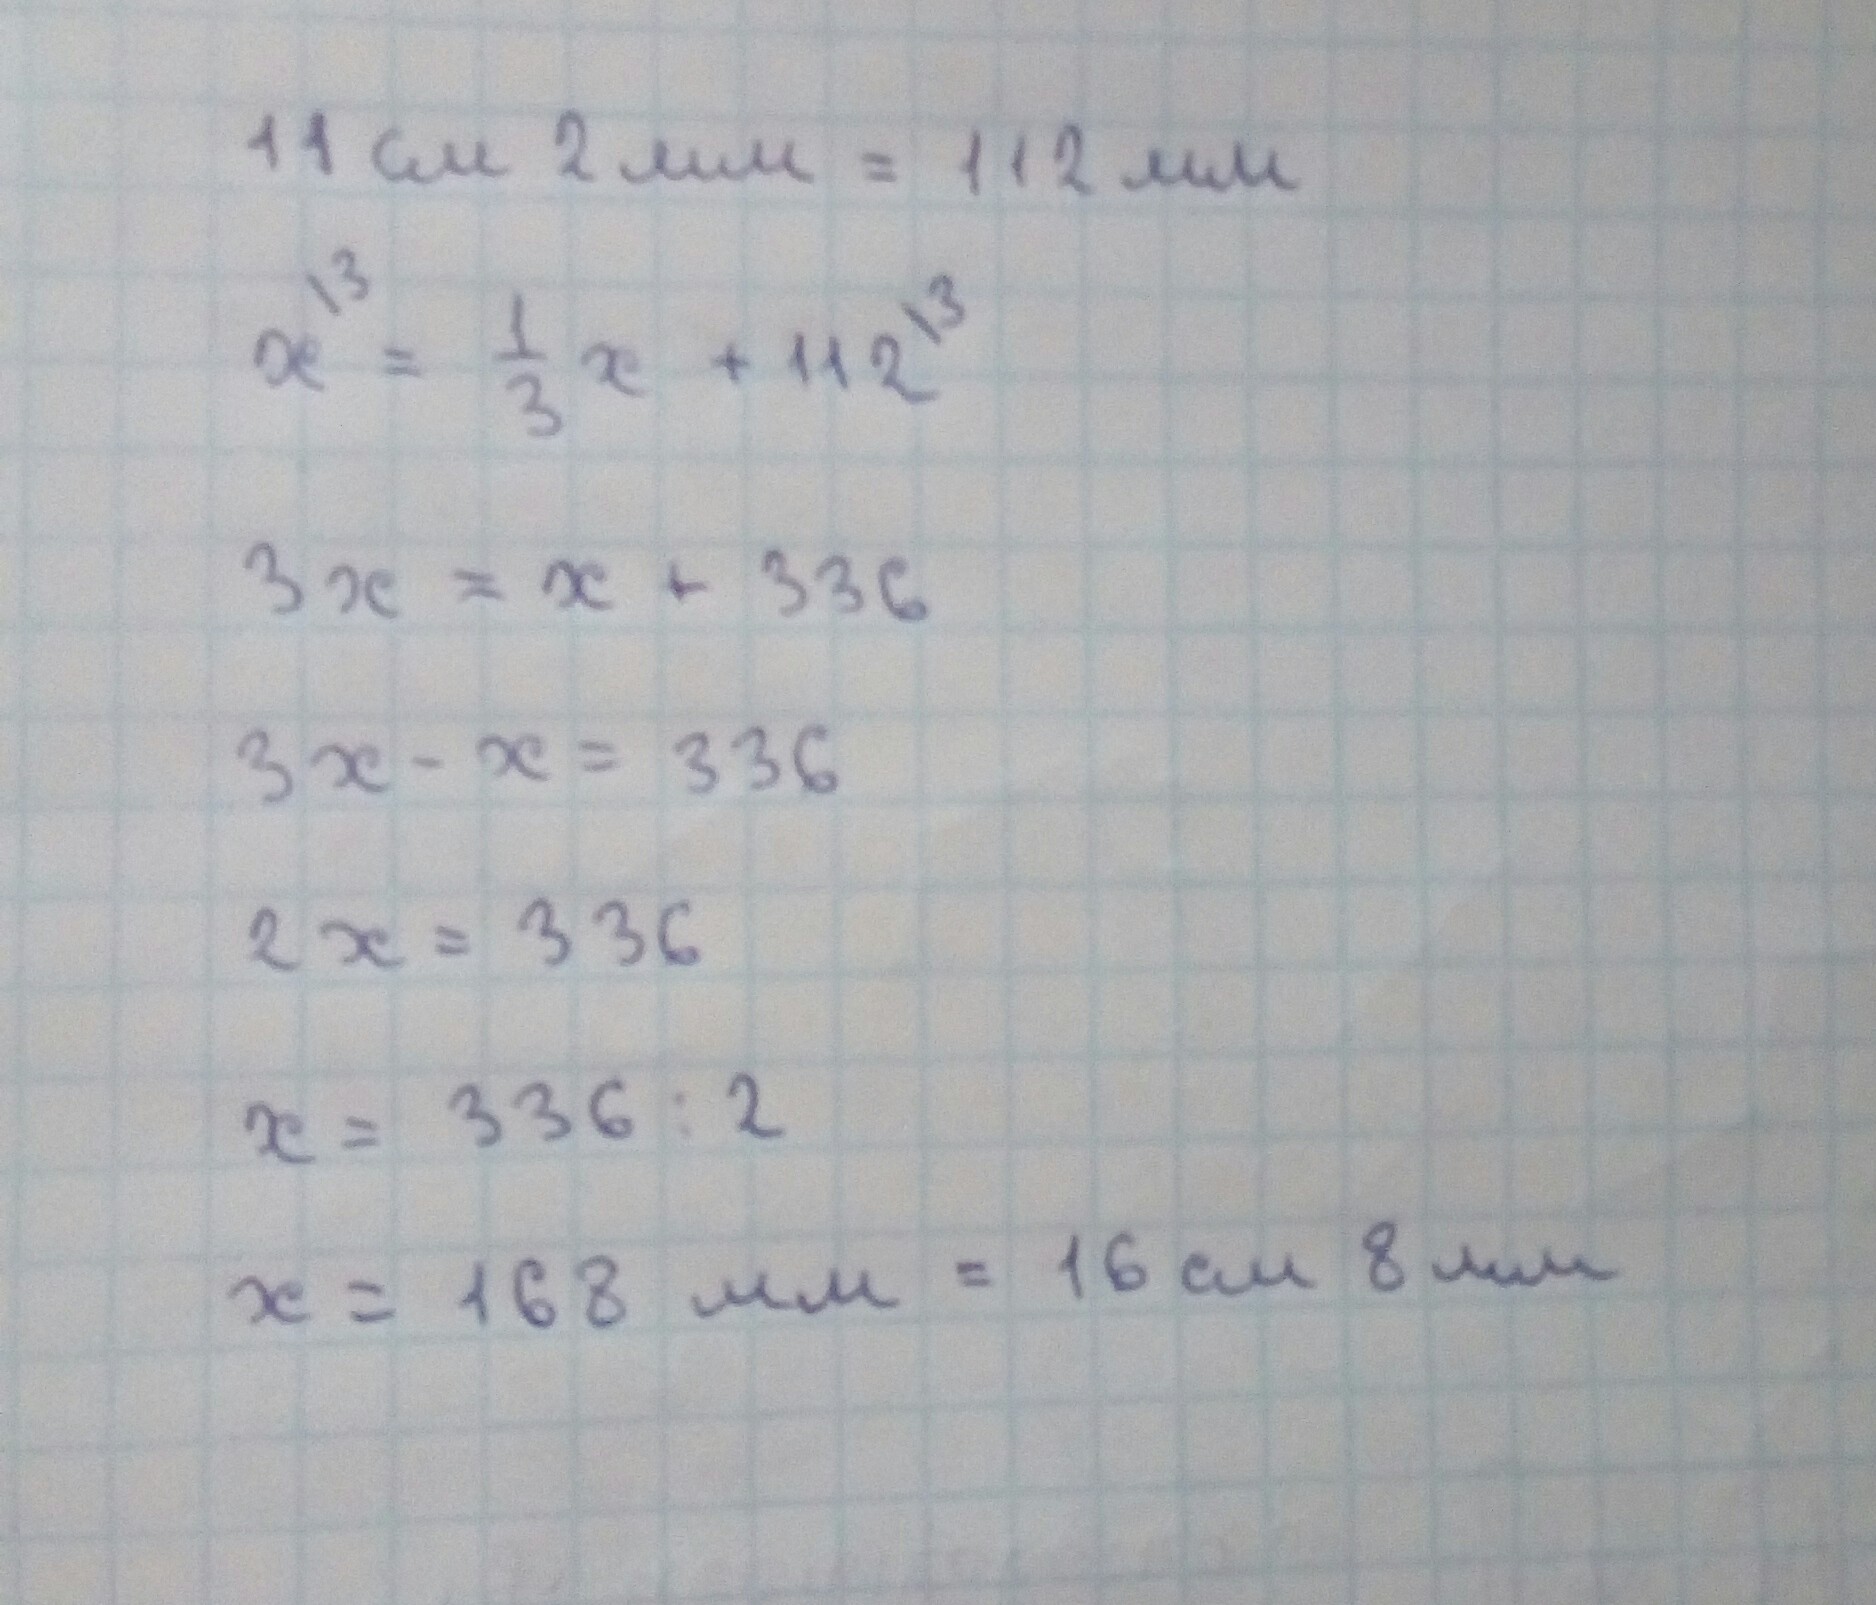 11 см 2 мм = 112 мм
x\3 = 1/3 x + 112\3
3x = x + 336
3x - x = 336
2x = 336
x = 336 : 2
x = 168 мм = 16 см 8 мм